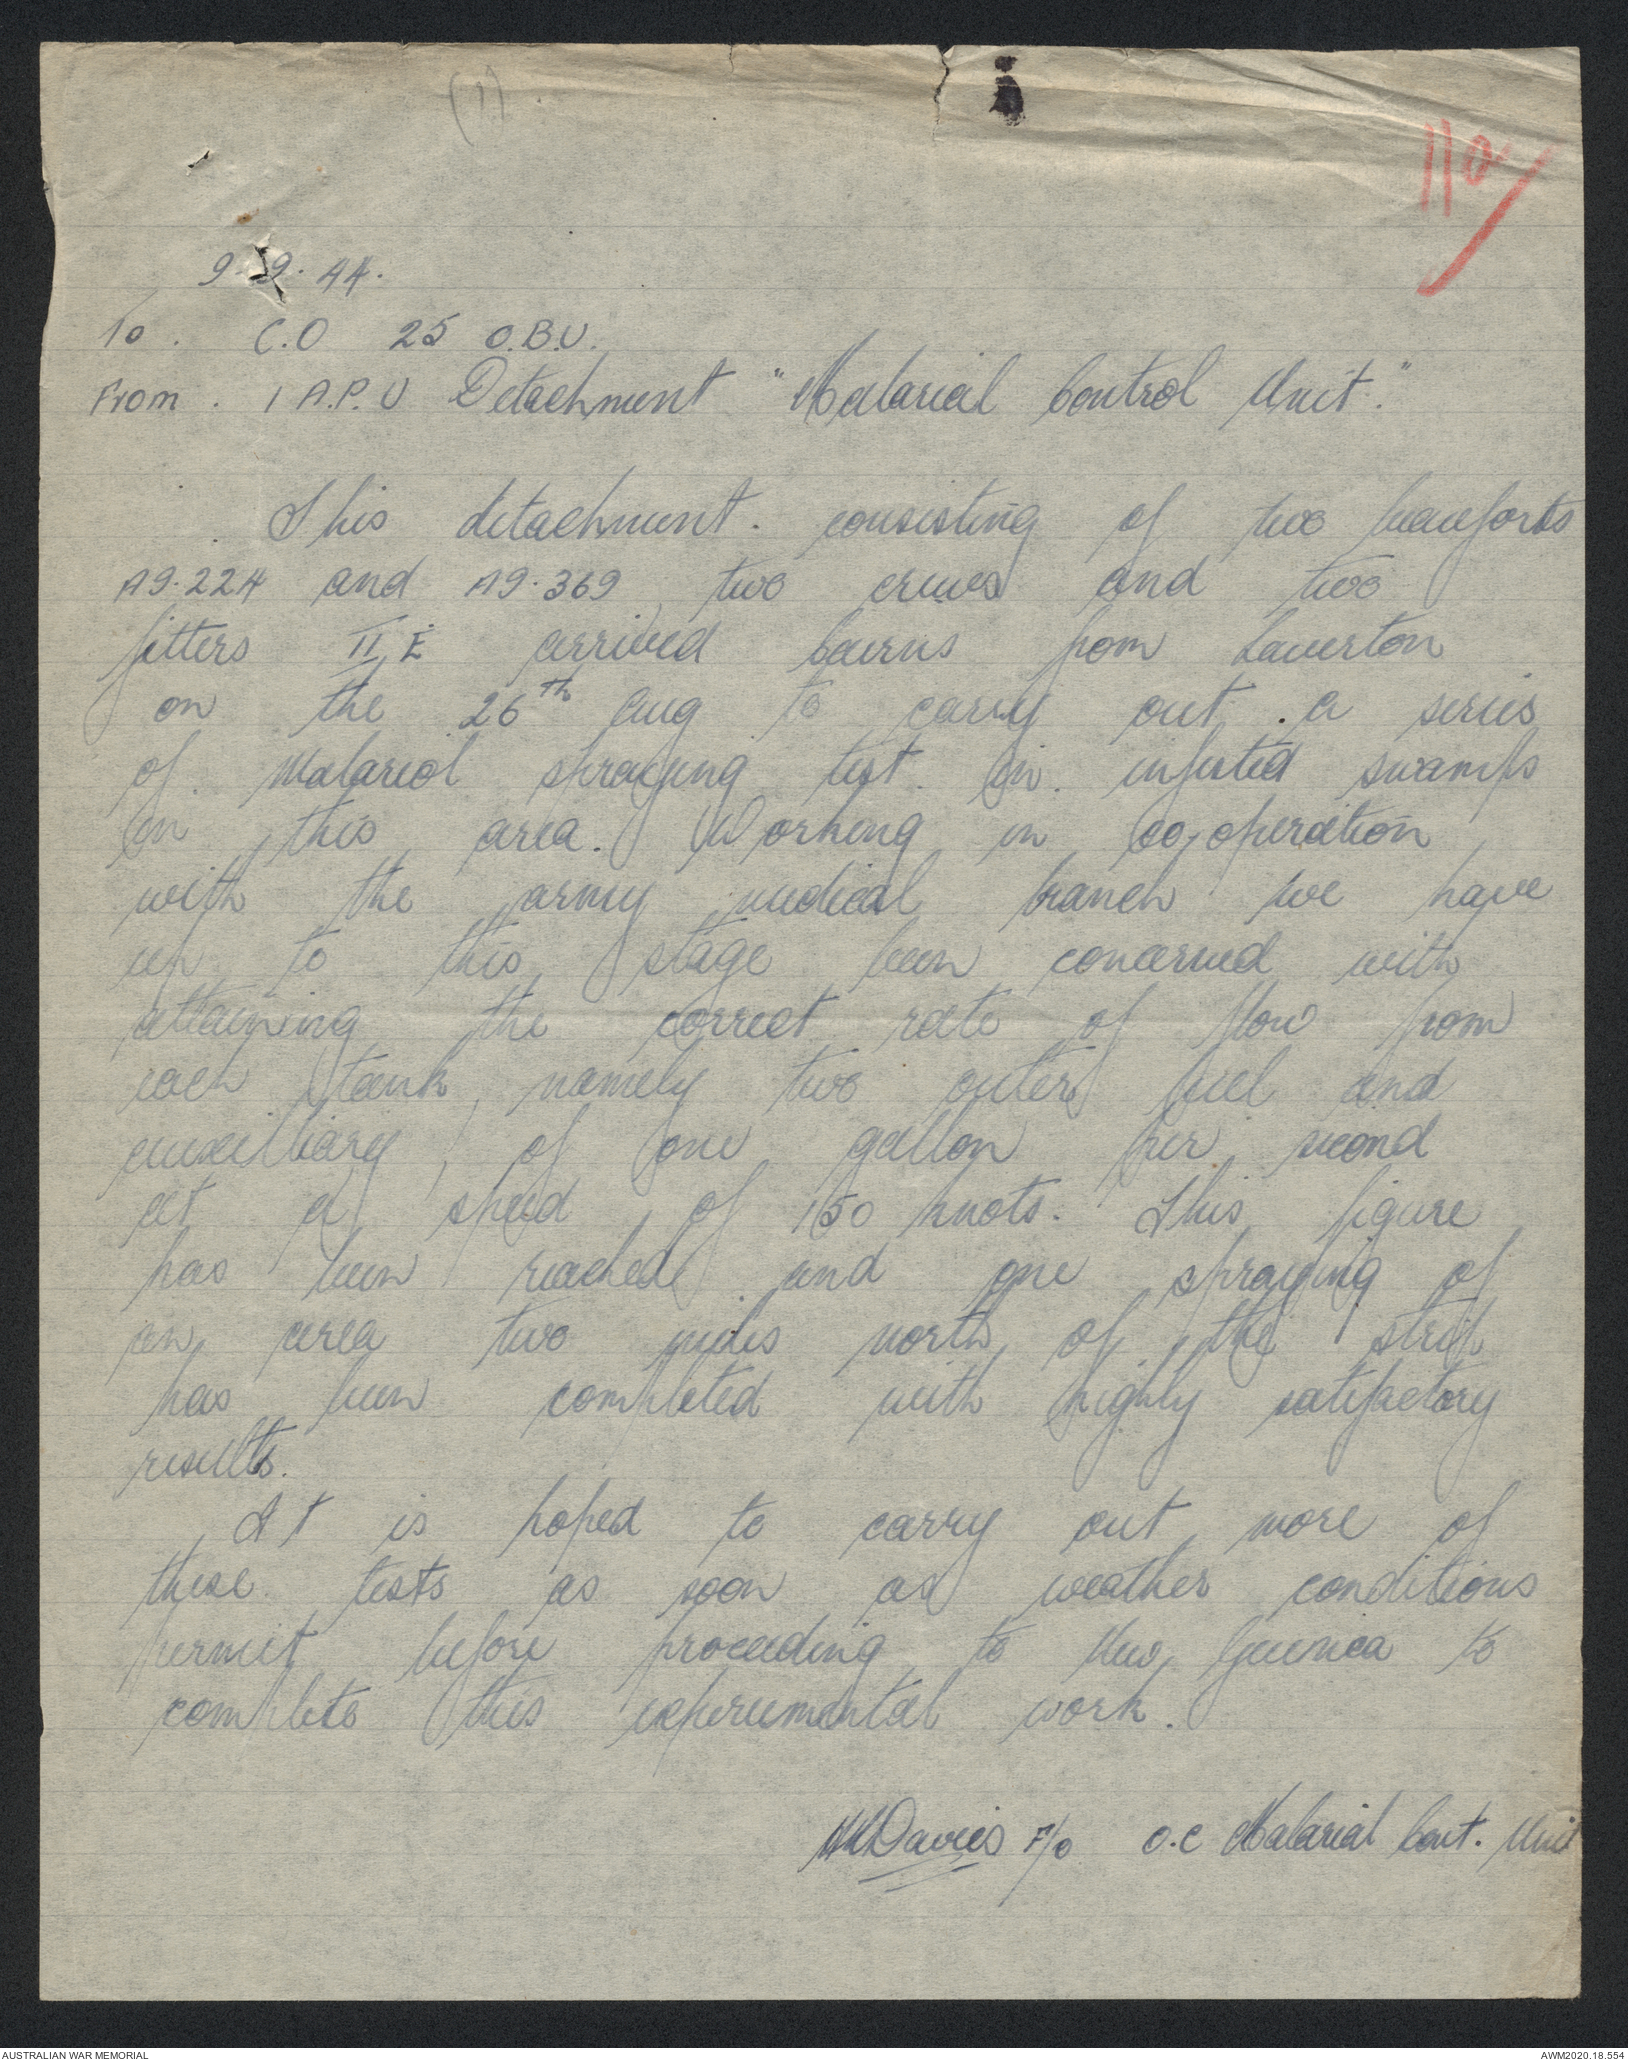 (1)
110
9.9.44.
To. C.O 25 O.B.U.
From. 1 A.P.U Detachment "Malarial Control Unit."
This detachment. consisting of two beauforts
A9.224 and A9.369, two crews and two
fitters II E arrived Cairns from Laverton
on the 26th Aug to carry out a series
of Malarial spraying test in infested swamps
in this area. Working in co-operation
with the army medical branch we have
up to this stage been concerned with
attaining the correct rate of flow from
each tank, namely two outer fuel and
auxilliary, of one gallon per second
at a speed of 150 knots. This figure
has been reached and one spraying of
an area two miles north of the strip
has been completed with highly satisfactory
results.
It is hoped to carry out more of
these tests as soon as weather conditions
permit before proceeding to New Guinea to
complete this experimental work.
Davies F/O O.C Malarial Cont. Unit
AUSTRALIAN WAR MEMORIAL
AWM2020.18.554